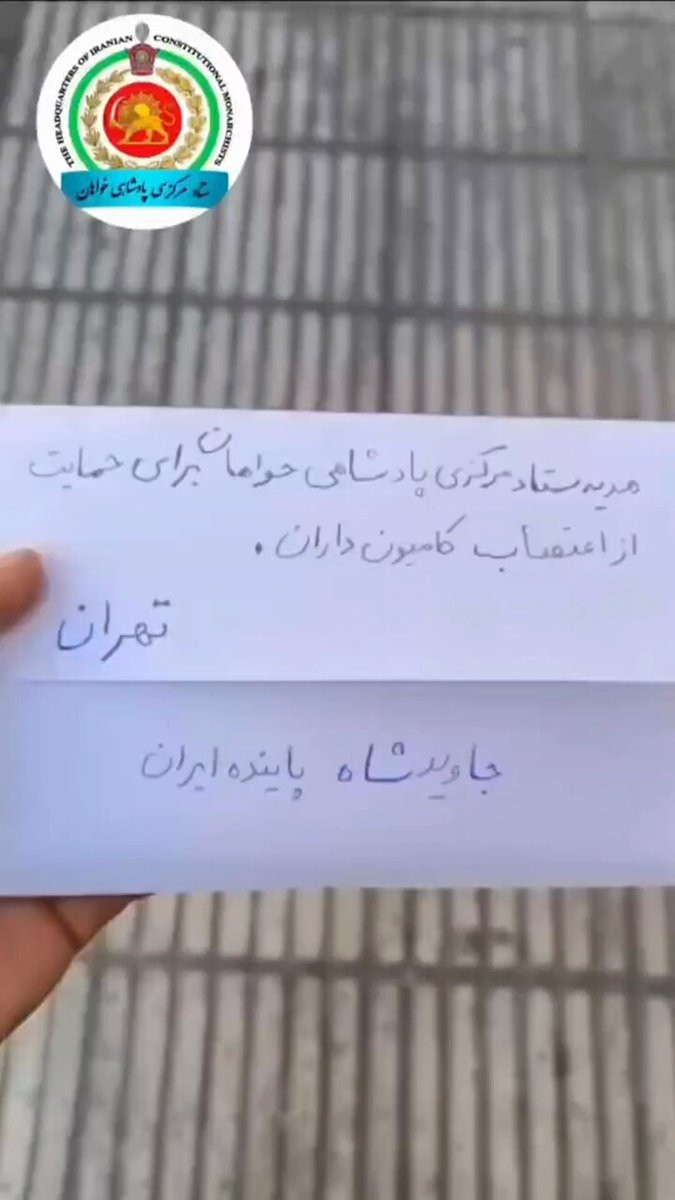 THE HEADQUARTERS OF IRANIAN CONSTITUTIONAL MONARCHISTS
ستاد مرکزی پادشاهی خواهان
هدیه ستاد مرکزی پادشاهی خواهان برای حمایت
از اعتصاب کامیون داران .
تهران
جاوید شاه پاینده ایران